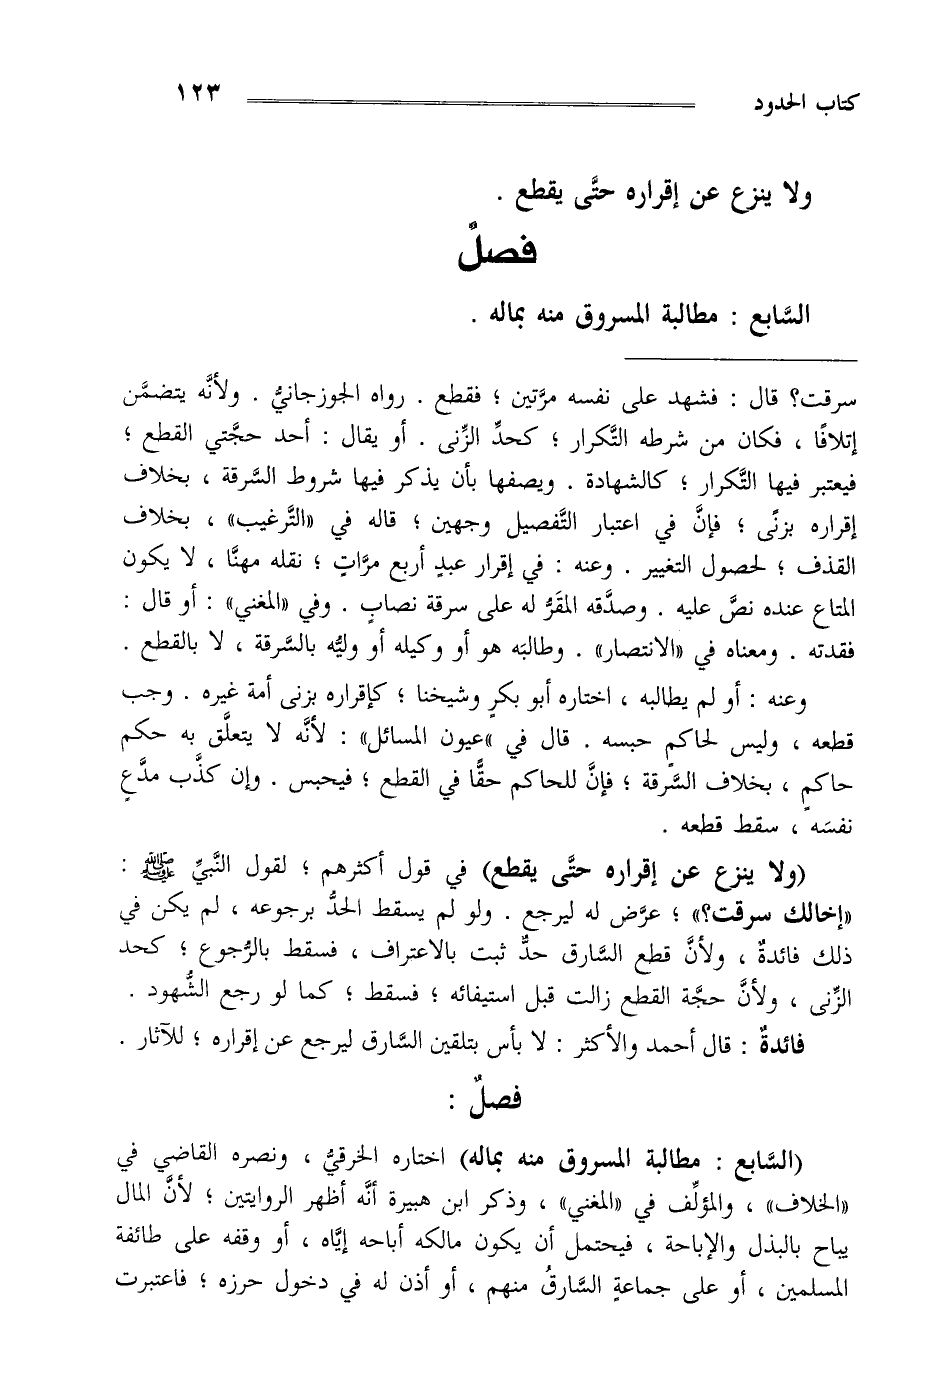 كتاب الحدود ١٢٣
ولا ينزع عن إقراره حتَّى يقطع .
فصلٌ
السَّابع : مطالبة المسروق منه بماله .
سرقت؟ قال : فشهد على نفسه مرَّتين ؛ فقطع . رواه الجوزجانيُّ . ولأنَّه يتضمَّن
إتلافًا ، فكان من شرطه التَّكرار ؛ كحدِّ الزِّنى . أو يقال : أحد حجَّتي القطع ؛
فيعتبر فيها التَّكرار ؛ كالشهادة . ويصفها بأن يذكر فيها شروط السَّرقة ، بخلاف
إقراره بزنًى ؛ فإنَّ في اعتبار التَّفصيل وجهين ؛ قاله في «التَّرغيب» ، بخلاف
القذف ؛ لحصول التغيير . وعنه : في إقرار عبدٍ أربع مرَّاتٍ ؛ نقله مهنَّا ، لا يكون
المتاع عنده نصَّ عليه . وصدَّقه المقَرُّ له على سرقة نصابٍ . وفي «المغني» : أو قال :
فقدته . ومعناه في «الانتصار» . وطالبَه هو أو وكيله أو وليُّه بالسَّرقة ، لا بالقطع .
وعنه : أو لم يطالبه ، اختاره أبو بكرٍ وشيخنا ؛ كإقراره بزنى أمة غيره . وجب
قطعه ، وليس لحاكمٍ حبسه . قال في »عيون المسائل» : لأنَّه لا يتعلَّق به حكم
حاكمٍ ، بخلاف السَّرقة ؛ فإنَّ للحاكم حقًّا في القطع ؛ فيحبس . وإن كذَّب مدَّعٍ
نفسَه ، سقط قطعه .
(ولا ينزع عن إقراره حتَّى يقطع) في قول أكثرهم ؛ لقول النَّبيِّ ﷺ :
«إخالك سرقت؟» ؛ عرَّض له ليرجع . ولو لم يسقط الحدُّ برجوعه ، لم يكن في
ذلك فائدةٌ ، ولأنَّ قطع السَّارق حدٌّ ثبت بالاعتراف ، فسقط بالرُّجوع ؛ كحد
الزِّنى ، ولأنَّ حجَّة القطع زالت قبل استيفائه ؛ فسقط ؛ كما لو رجع الشُّهود .
فائدةٌ : قال أحمد والأكثر : لا بأس بتلقين السَّارق ليرجع عن إقراره ؛ للآثار .
فصلٌ :
(السَّابع : مطالبة المسروق منه بماله) اختاره الخرقيُّ ، ونصره القاضي في
«الخلاف» ، والمؤلِّف في «المغني» ، وذكر ابن هبيرة أنَّه أظهر الروايتين ؛ لأنَّ المال
يباح بالبذل والإباحة ، فيحتمل أن يكون مالكه أباحه إيَّاه ، أو وقفه على طائفة
المسلمين ، أو على جماعةٍ السَّارقُ منهم ، أو أذن له في دخول حرزه ؛ فاعتبرت